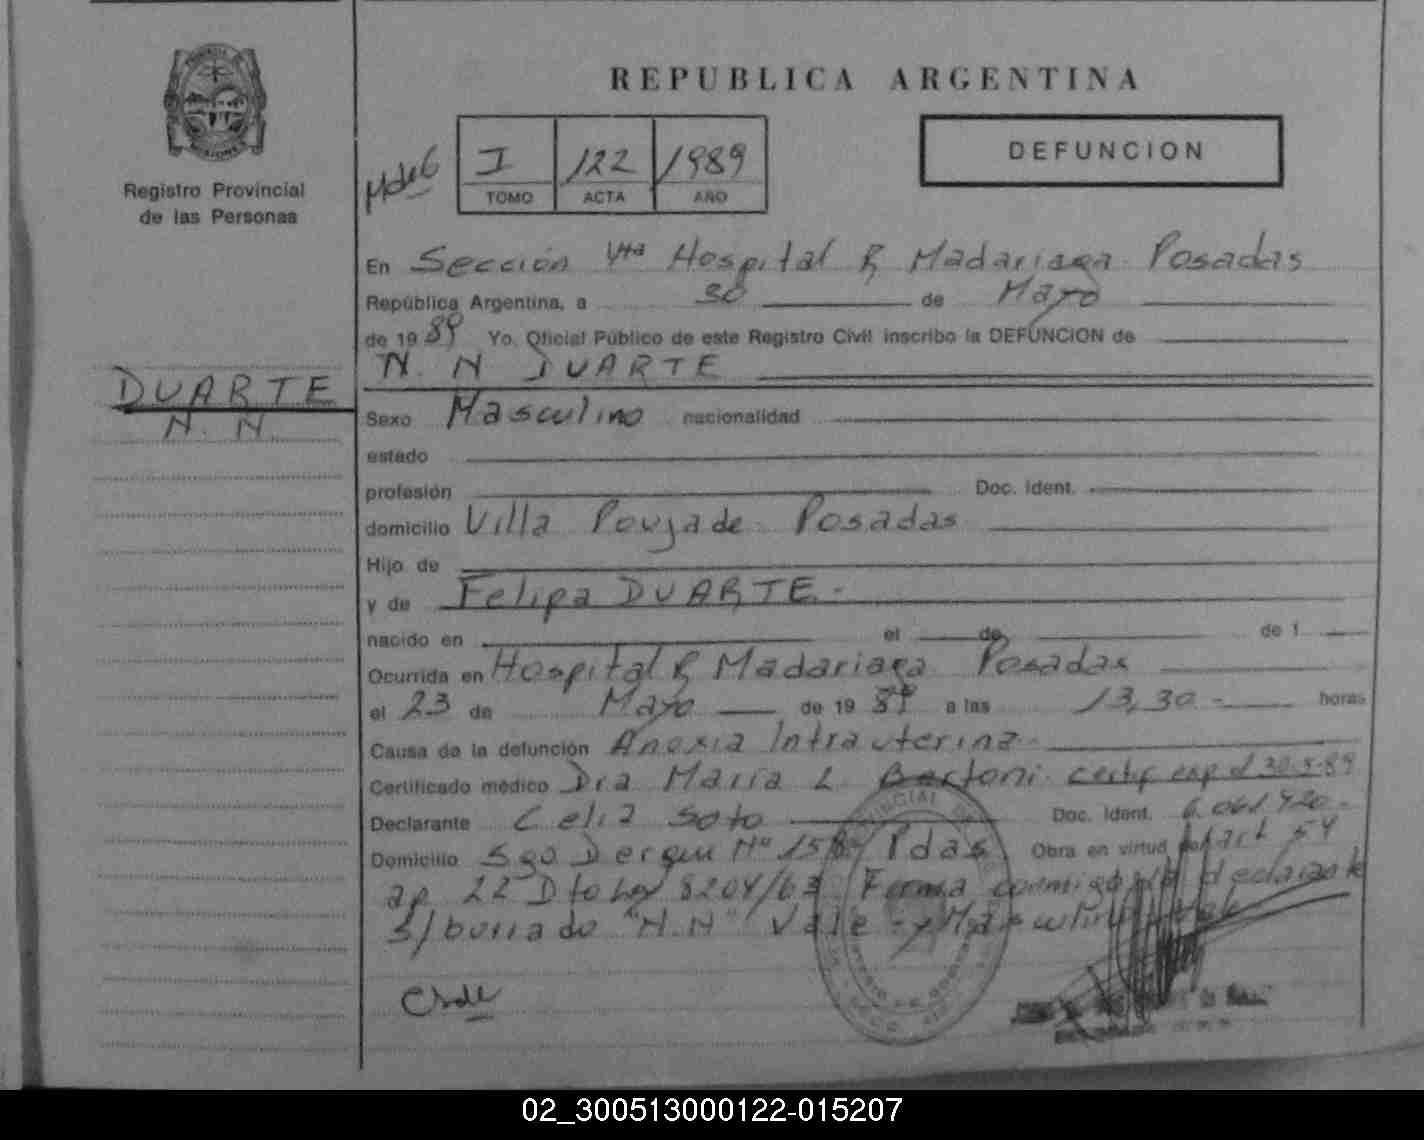 REPUBLICA ARGENTINA
I 122 1989
TOMO ACTA AÑO
DEFUNCION
Registro Provincial
de las Personas
DUARTE
N. N
En Sección Vta Hospital R Madariaga Posadas
República Argentina, a 30 de Mayo
de 19 89 Yo, Oficial Público de este Registro Civil inscribo la DEFUNCION de
N. N DUARTE
Sexo Masculino nacionalidad
estado
profesión Doc. Ident.
domicilio Villa Poujade Posadas
Hijo de
y de Felipa DUARTE.-
nacido en el de de 1
Ocurrida en Hospital R Madariaga Posadas
el 23 de Mayo de 19 89 a las 13,30 - horas
Causa de la defunción Anoxia Intrauterina
Certificado médico Dra María L Bertoni certif exp el 30-5-89
Declarante Celia Soto Doc. Ident. 6.061.420-
Domicilio Sgo Derqui Nº 158 Pdas Obra en virtud de art 54
ap. 22 Dto Ley 8204/63 Firma conmigo la declarante
S/borrado "N.N" Vale - y Masculino
02_300513000122-015207